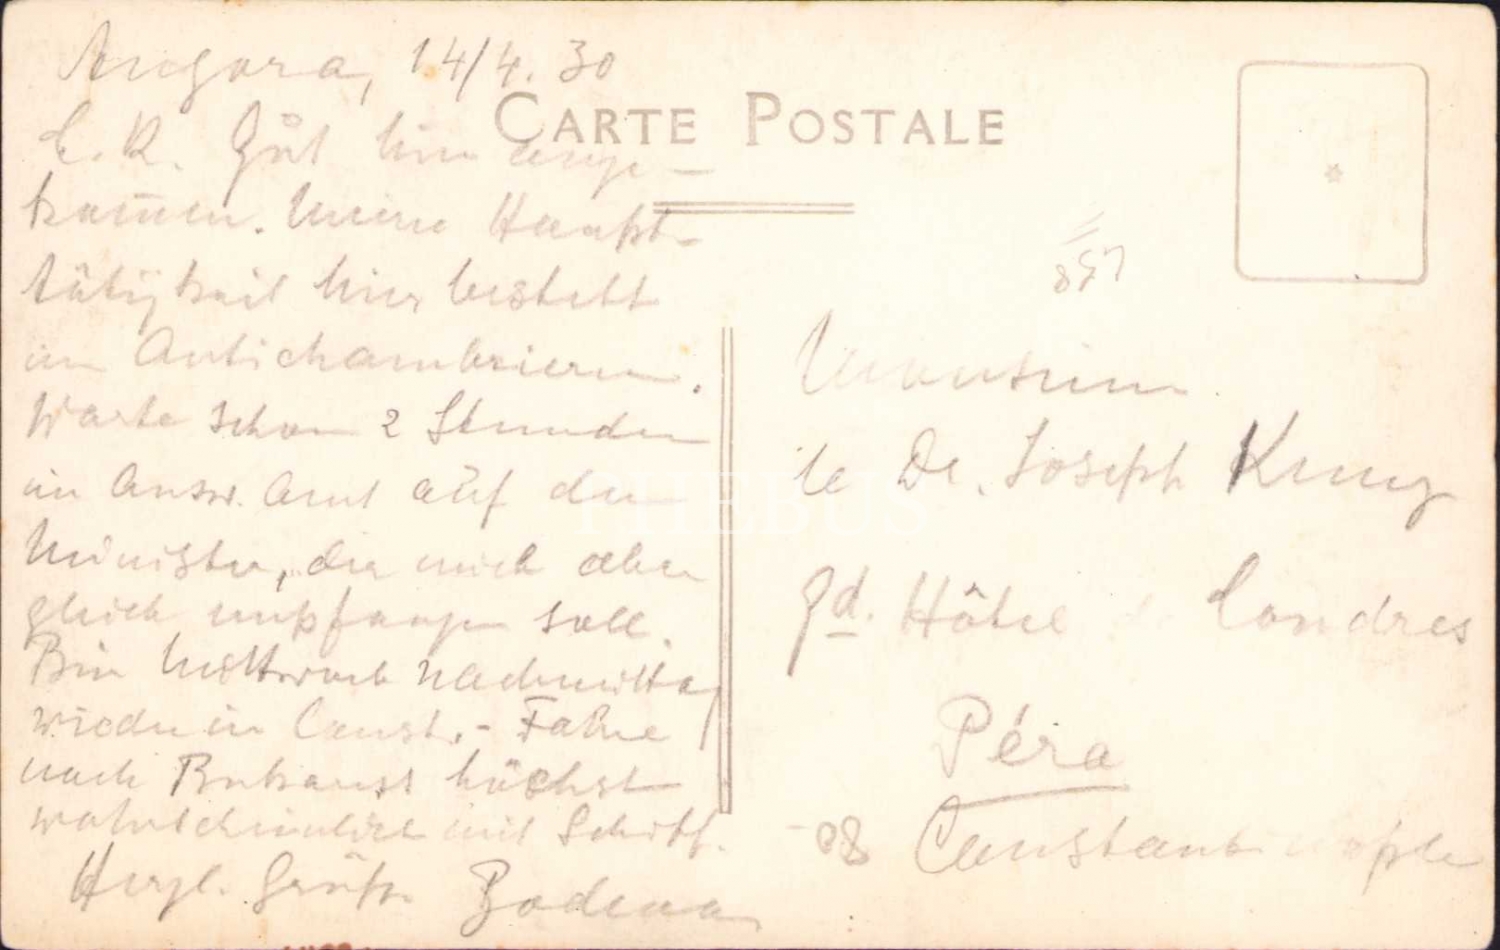 Angora, 14/4. 30
CARTE POSTALE
L. K. Gut hier ange-
kommen. Meine Haupt-
tätigkeit hier besteht
im Antichambrieren.
Warte schon 2 Stunden
im Ausw. Amt auf den
Minister, der mich aber
gleich empfangen soll.
Bin Mittwoch Nachmittag
wieder in Const. - Fahre
nach Bukarest höchst
wahrscheinlich mit Schiff.
Herzl. Grüße
857
Monsieur
le Dr. Joseph
gd. Hôtel de Londres
Péra
Constantinople
80
PHEBUS